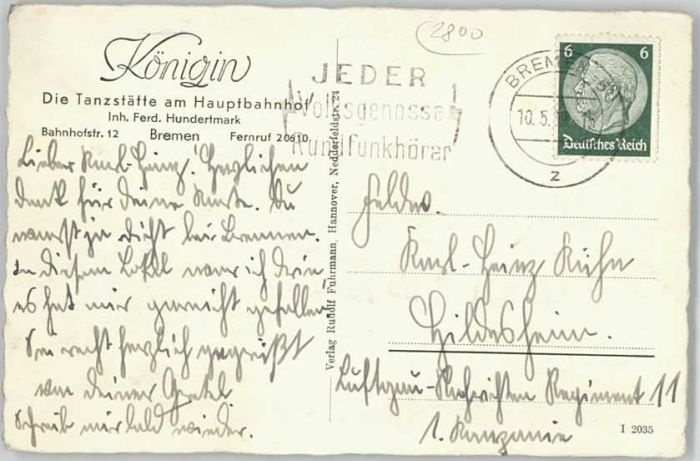 2800
Königin
Die Tanzstätte am Hauptbahnhof
Inh. Ferd. Hundertmark
Bahnhofstr. 12 Bremen Fernruf 20610
Lieber Karl-Heinz! Herzlichen
Dank für Deine Karte. Du
warst ja dicht bei Bremen.
In diesem Lokal war ich drin
es hat mir garnicht gefallen,
Sei recht herzlich gegrüßt
von Deiner Gretel
Schreib mir bald wieder.
Verlag Rudolf Fuhrmann, Hannover, Nedderfeldstr. 24
JEDER
Volksgenosse
Rundfunkhörer
BREMEN
10.5.
z
6 6
Deutsches Reich
Karl-Heinz Kühn
Hildesheim.
Luftgau-Nachrichten Regiment 11
1. Kompanie
I 2035